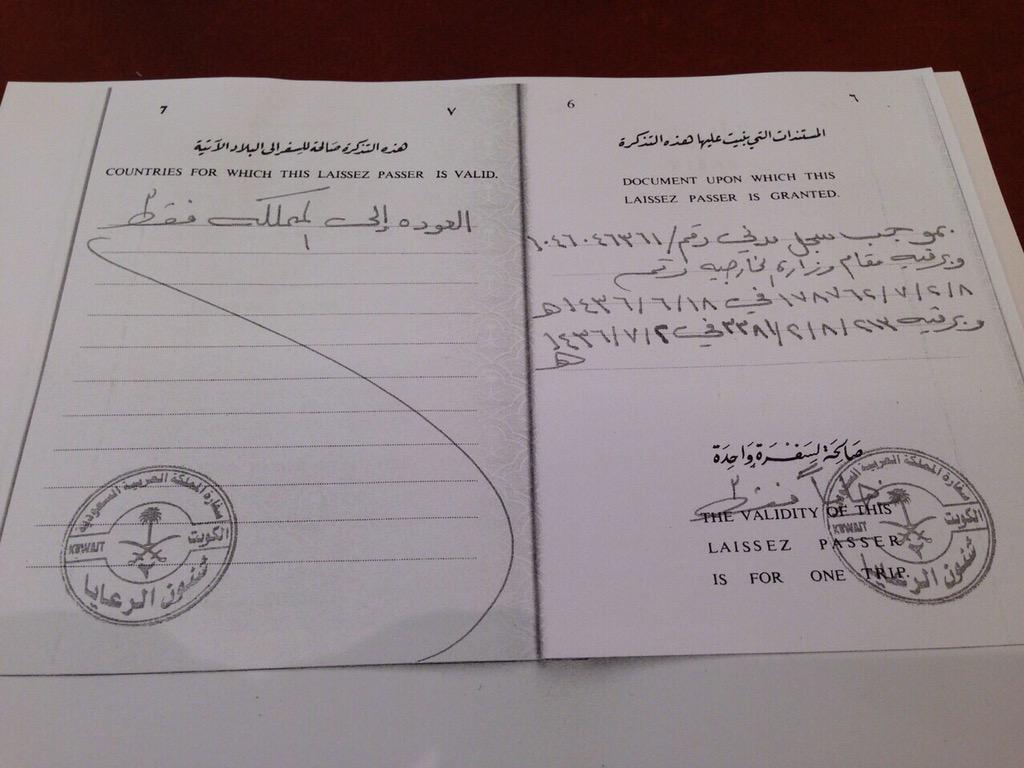 ٦
6
المستندات التي بنيت عليها هذه التذكرة
DOCUMENT UPON WHICH THIS
LAISSEZ PASSER IS GRANTED.
بموجب سجل مدني رقم/١٠٤٦٠٤٦٣٦١
وبرقيه مقام وزارة الخارجيه رقم
١٧٨٧٦٢/٧/٢/٨ في ١٤٣٦/٦/١٨هـ
وبرقيه ٢٣٨١/٢/٨/٢١٣ في ١٤٣٦/٧/٢
هـ
صالحة لسفرة واحدة
فقط
THE VALIDITY OF THIS
LAISSEZ PASSER
IS FOR ONE TRIP.
سفارة المملكة العربية السعودية
KUWAIT
الكويت
شئون الرعايا
٧
7
هذه التذكرة صالحة للسفر الى البلاد الآتية
COUNTRIES FOR WHICH THIS LAISSEZ PASSER IS VALID.
العوده إلى المملكه فقط
سفارة المملكة العربية السعودية
KUWAIT
الكويت
شئون الرعايا